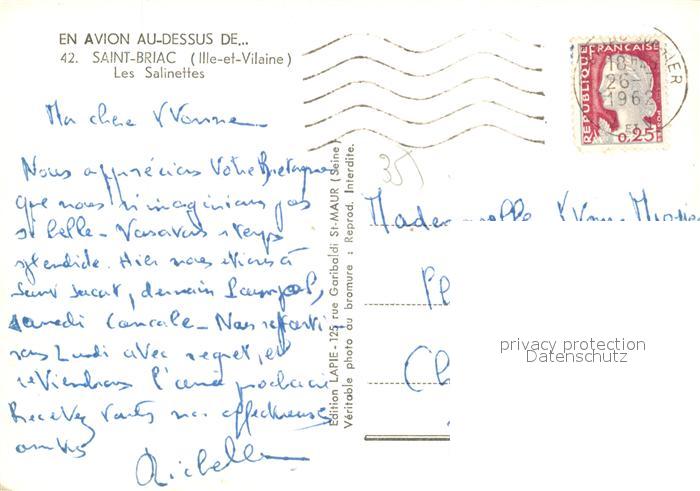 EN AVION AU-DESSUS DE...
42. SAINT-BRIAC (Ille-et-Vilaine)
Les Salinettes
Ma chère Yvonne
Nous apprécions Votre Bretagne
que nous n'imaginions pas
si belle - Nous avons 1 temps
splendide. Hier nous étions à
Saint Jacut, demain Paimpol,
samedi Cancale - Nous reparti-
rons Lundi avec regret, et
reviendrons l'année prochaine
Recevez toutes nos affectueuses
amitiés
Edition LAPIE - 125 rue Garibaldi St-MAUR (Seine)
Véritable photo au bromure : Reprod. Interdite.
18H
26-7
1962
REPUBLIQUE FRANÇAISE
0,25
35
Mademoiselle Yvonne
Pl
Ch
privacy protection
Datenschutz